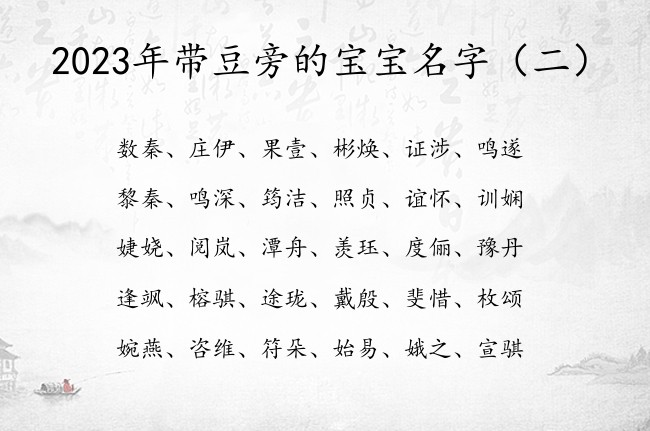 2023年带豆旁的宝宝名字（二）
数秦、庄伊、果壹、彬焕、证涉、鸣遂
黎秦、鸣深、筠洁、照贞、谊怀、训娴
婕娆、阅岚、潭舟、羡珏、度俪、豫丹
逢飒、榕骐、途珑、戴殷、斐惜、枚颂
婉燕、咨维、符朵、始易、娥之、宣骐